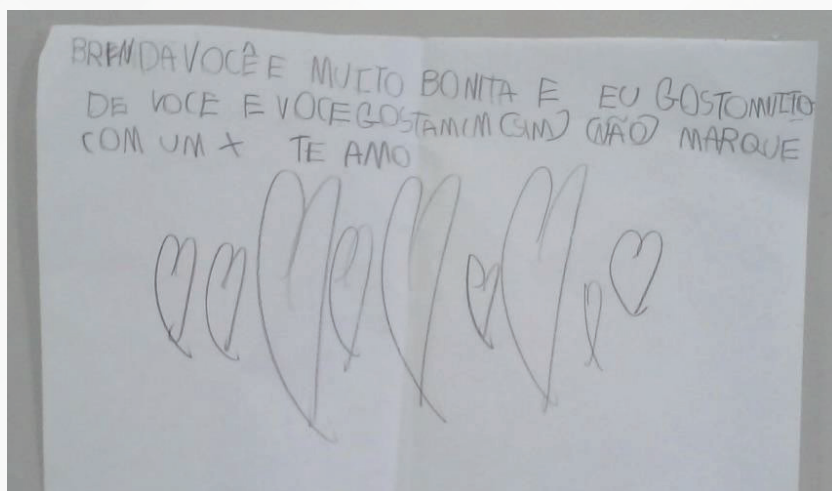 BRENDA VOCÊ E MUITO BONITA E EU GOSTO MUITO
DE VOCE E VOCE GOSTA MIM (SIM) (NÃO) MARQUE
COM UM X TE AMO